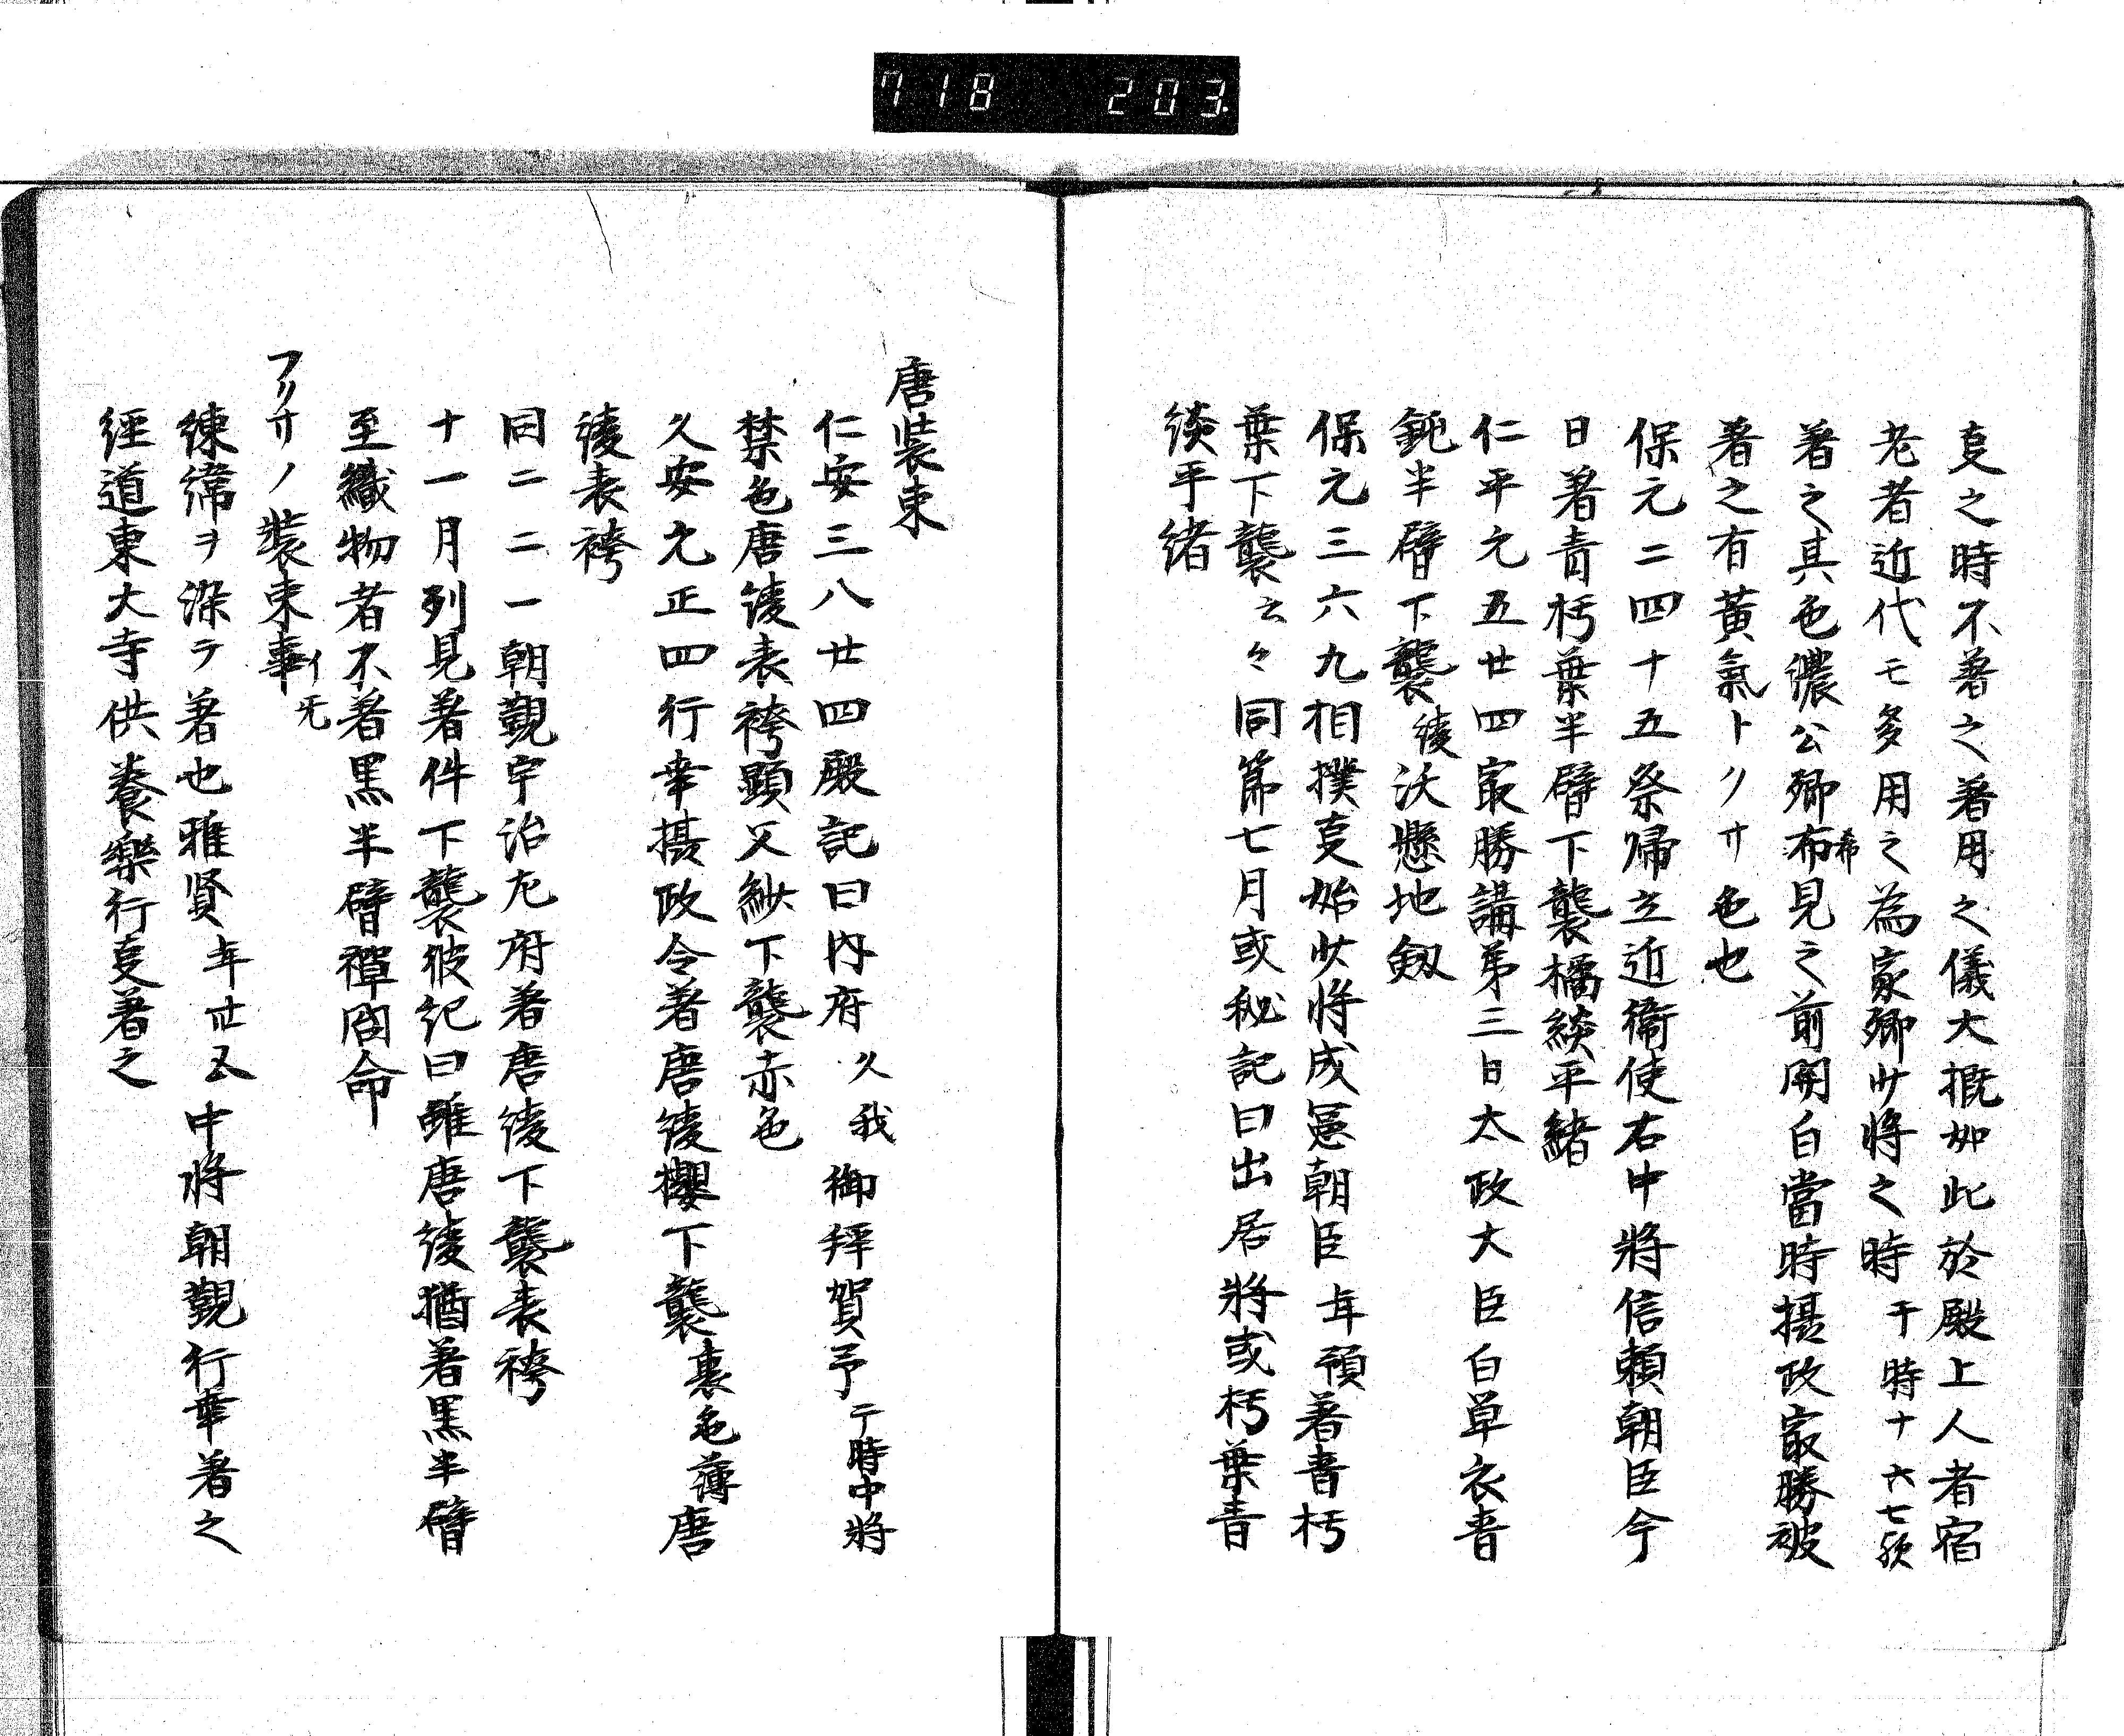 718 203
夏之時不著之著用之儀大概如此於殿上人者宿
老者近代モ多用之為家卿少将之時于時十六七歟
著之其色濃公卿布希見之前関白當時摂政最勝被
著之有黄氣トリノ廾色也
保元二四十五祭帰立近衛使右中将信頼朝臣今
日著青朽葉半臂下襲橘緂平緒
仁平元五廿四最勝講第三日太政大臣白単衣青
鈍半臂下襲綾沃懸地釼
保元三六九相撲夏始少将成憲朝臣年預著青朽
葉下襲云々同節七月或秘記曰出居将或朽葉青
緂平緒
唐装束
仁安三八廿四殿記曰内府久我御拝賀予于時中将
禁色唐綾表袴顕文紗下襲赤色
久安元正四行幸摂政令著唐綾櫻下襲裏色薄唐
綾表袴
同二二一朝覲宇治左府著唐綾下襲表袴
十一月列見著件下襲彼記曰雖唐綾猶著黒半臂
至織物者不著黒半臂禪閤命
フリ廾ノ装束事イ无
練緯ヲ染テ著也雅賢年廿五中将朝覲行幸著之
經道東大寺供養樂行夏著之